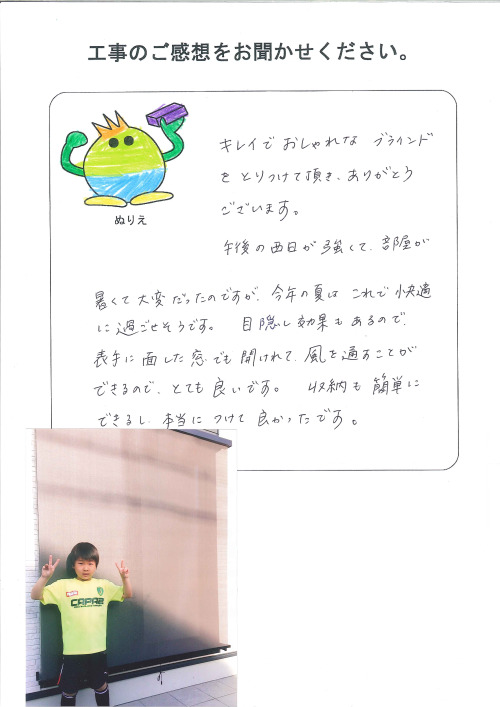 工事のご感想をお聞かせください。
キレイでおしゃれな ブラインド
を とりつけて頂き、ありがとう
ございます。
ぬりえ
午後の西日が 強くて、部屋が
暑くて 大変だったのですが、今年の夏は これで快適
に 過ごせそうです。 目隠し効果も あるので、
表手に 面した 窓でも 開けれて、風を通すことが
できるので、とても 良いです。 収納も 簡単に
できるし、本当に つけて 良かったです。
CAPAZ